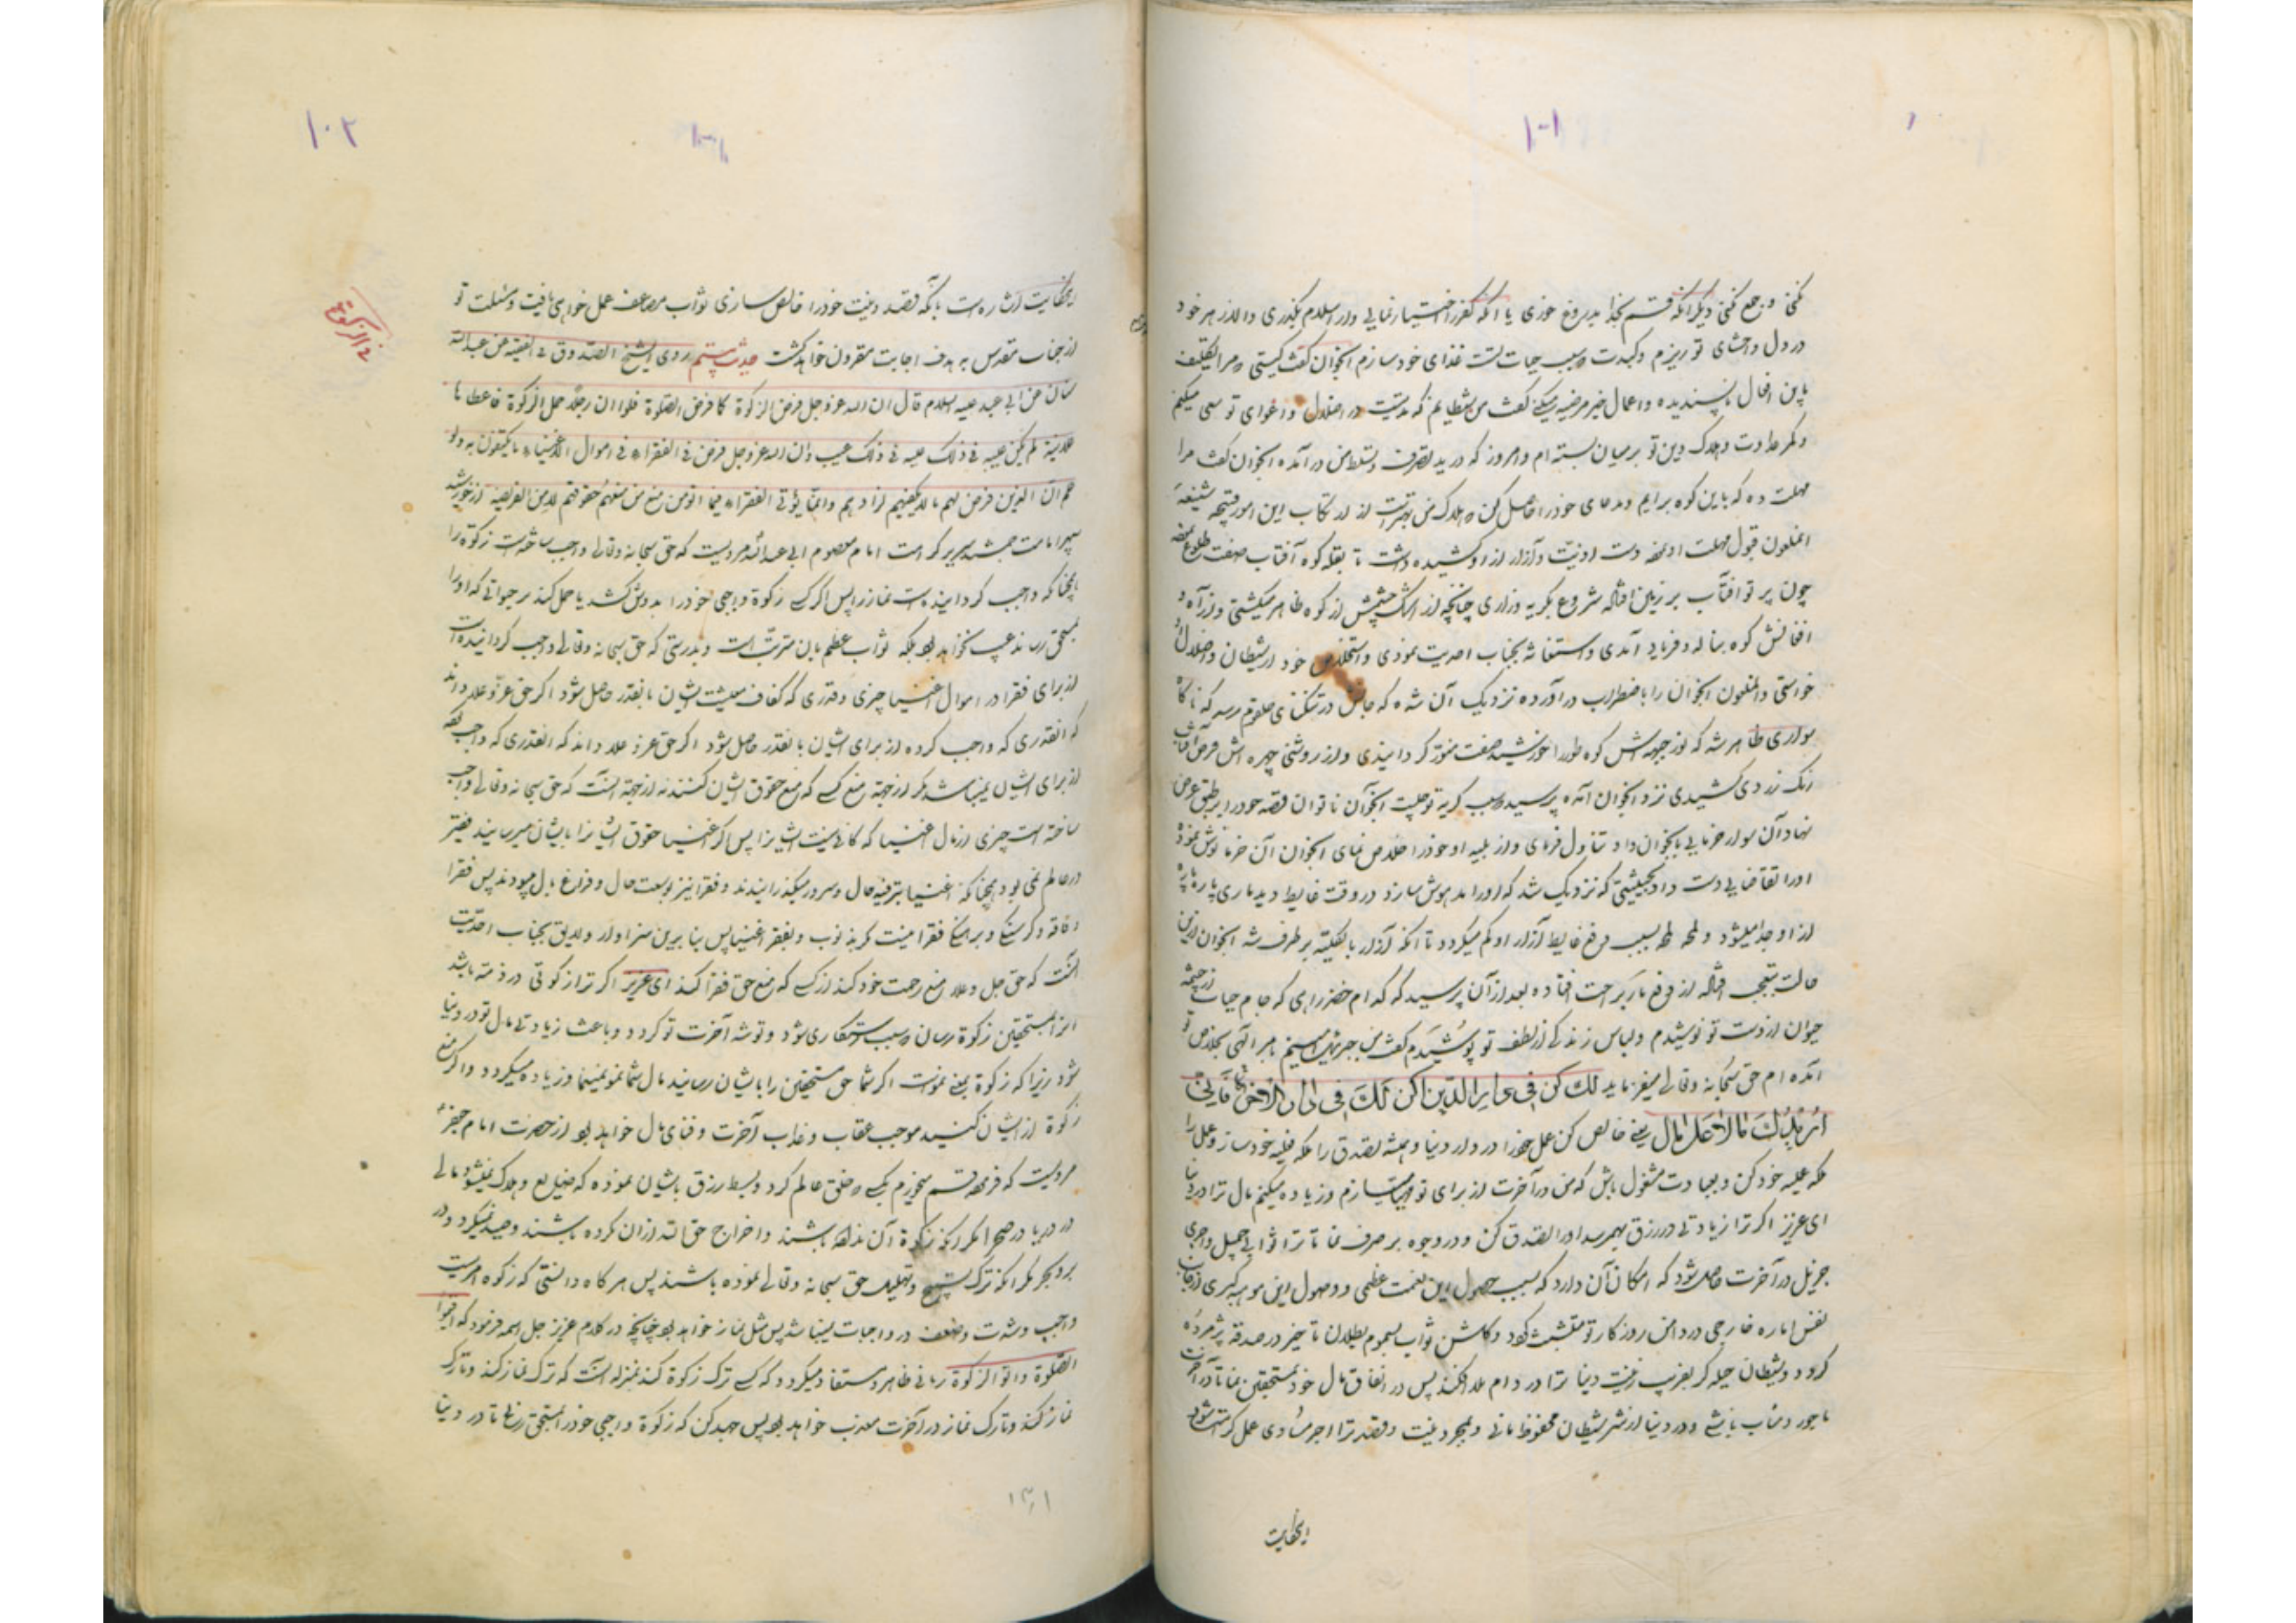 ۱۰۱
کنی و زجمع کنی دیگر آنکه قسم بخدا بدروغ خوری یا آنکه کفر اختیار نمایی و از اسلام بگذری والا زهر خود
در دل و احشای تو ریزم و کبدت و سبب حیات تست غذای خود سازم آنجوان گفت کیستی و مرا تکلیف
باین افعال ناپسندیده و اعمال غیر مرضیه میکنی گفت من شیطانم که مدتیست در اضلال و اغوای تو سعی میکنم
و کمر عداوت و هلاک دین تو بر میان بسته ام و امروز که در ید تصرف و تسلط من در آمده آنجوان گفت مرا
مهلت ده که باین کوه برایم و مدعای خود را حاصل کن و هلاک من بهتر است از ارتکاب این امور قبیحه شنیعه
آنملعون قبول مهلت او نمود دست اذیت و آزار از او کشیده داشت تا بقله کوه آفتاب صفت طلوع نمود
چون پرتو آفتاب بر زمین افتاد شروع بگریه و زاری چنانچه از اشک چشمش از کوه ظاهر میگشتی و از آه و
افغانش کوه بناله و فریاد آمدی و استغاثه بجناب احدیت نمودی و استخلاص خود از شیطان و اضلال او
خواستی و آنملعون آنجوان را باضطراب در آورده نزدیک آن شده که جانش در تنگنای حلقوم رسد که ناگاه
سواری ظاهر شد که نور جبهه اش کوه طور را خورشید صفت منور گردانیدی و از روشنی چهره اش قرص آفتاب
رنگ زردی کشیدی نزد آنجوان آمده پرسید سبب گریه تو چیست آنجوان ناتوان قصه خود را بر طبق عرض
نهاد آن سوار خرمایی بآنجوان داد تناول فرمای و از بلیه او خود را خلاص نمای آنجوان آن خرما نوش نموده
او را تقاضایی دست داد بحیثیتی که نزدیک شد که او را مدهوش سازد در وقت غایط دید ماری پاره پاره
از او جدا میشود و لمحه لمحه بسبب دفع غایط آزار او کم میگردد تا آنکه آزار بالکلیه بر طرف شد آنجوان ازین
حالت بتعجب افتاد از دفع مار براحت افتاده بعد از آن پرسید که کدام خضر راهی که جام حیات از چشمه
حیوان از دست تو نوشیدم و لباس زندگی از لطف تو پوشیدم گفت من جبرئیل امینم بامر الهی بخلاص تو
آمده ام حق سبحانه و تعالی میفرماید لک کن فی دار الدین اکن لک فی دار الاخره فانی
ازید لک مالا علی المال یعنی خالص کن عمل خود را در دار دنیا و همیشه تصدق را ملکه قلبیه خود ساز و عمل را
ملکه علیه خود کن و بعبادت مشغول باش که من در آخرت از برای تو مهیا میسازم و زیاده میکنم مال ترا در دنیا
ای عزیز اگر ترا زیادتی در رزق بهم رسد او را تصدق کن و در وجوه بر صرف نما تا ترا ثوابی جمیل و اجری
جزیل در آخرت حاصل شود که امکان آن دارد که بسبب حصول این نعمت عظمی و وصول این موهبه کبری از جانب
نفس اماره خارجی در دامن روزگار تو متشبث گردد و گلشن ثواب بسموم بطلان تا خیر در صدقه پژمرده
گردد و شیطان حیله گر بفریب زینت دنیا ترا در دام بلا افکند پس در انفاق مال خود بمستحقین نما تا در آخرت
ماجور و مثاب باشی و در دنیا از شر شیطان محفوظ مانی و بمجرد نیت و قصد ترا اجر مساوی عمل کرامت شود
اینحکایت
۱۰۲
فی الزکوة
اینحکایت اشاره است بآنکه قصد و نیت خود را خالص سازی ثواب مضاعف عمل خواهی یافت و مسئلت تو
از جناب مقدس به هدف اجابت مقرون خواهد گشت حدیث بیستم روی الشیخ الصدوق فی الفقیه عن عبدالله
سنان عن ابی عبد علیه السلام قال ان الله عز وجل فرض الزکوة کما فرض الصلوة فلو ان رجلا حمل الزکوة فاعطاها
علانیة لم یکن علیه فی ذلک علیه فی ذلک عیب و ان الله عز وجل فرض فی الفقراء فی اموال الاغنیاء ما یکتفون به ولو
علم ان الذین فرض لهم ما لا یکفیهم لزادهم وانما یؤتی الفقراء فیما اتو من منع من منعهم حقوقهم لا من الفریضة از خورشید
سپهر امامت جمشید سریر کرامت امام معصوم ابی عبدالله مرویست که حق سبحانه و تعالی واجب ساخته است زکوة را
همچنانکه واجب گردانیده است نماز را پس اگر کسی زکوة واجبی خود را بدوش کشد یا حمل کند بر حیوانی که او را
بمستحق رساند عیب نخواهد بود بلکه ثواب عظیم بان مترتب است و بدرستی که حق سبحانه و تعالی واجب گردانیده است
از برای فقرا در اموال اغنیا چیزی و قدری که کفاف معیشت ایشان بانقدر حاصل شود اگر حق عز و علا داند
که آنقدری که واجب کرده از برای ایشان بانقدر حاصل شود اگر حق عز و علا داند که آنقدری که واجب بود
از برای ایشان نمیباشد مگر از جهة منع کسی که منع حقوق ایشان کنند نه از جهة آنست که حق سبحانه و تعالی واجب
ساخته است چیزی از مال اغنیا که کافی نیست ایشانرا پس اگر اغنیا حقوق ایشانرا بایشان میرسانیدند فقیر
در عالم نمی بود و همچنانکه اغنیا بترفیه حال و سرور میگذرانیدند و فقرا نیز بوسعت حال و فراغ بال میبودند پس فقرا
و فاقه و گرسنگی و برهنگی فقرا نیست مگر بذنوب و بفقر اغنیا پس بنابرین سزاوار و لایق بجناب احدیت
آنست که حق جل و علا منع رحمت خود کند از کسی که منع حق فقرا کند ای عزیز اگر ترا زکوتی در ذمه باشد
انرا بمستحقین زکوة رسان و سبب رستگاری شود و توشه آخرت تو گردد و باعث زیادتی مال تو در دنیا
شود زیرا که زکوة بمعنی نموست اگر شما حق مستحقین را بایشان رسانید مال شما نمو نمینما و زیاده میگردد و اگر منع
زکوة از ایشان کنید موجب عقاب و عذاب آخرت و فنای مال خواهد بود از حضرت امام جعفر
مرویست که فرمود قسم میخورم بکسی و خلق عالم کرد و بسط رزق بایشان نموده که ضایع و هلاک نمیشود مالی
در دریا در صحرا مگر آنکه زکوة آن نداده باشند و اخراج حق الله از آن نکرده باشند و صید نمیگردد در
بر و بحر مگر آنکه ترک تسبیح و تهلیل حق سبحانه و تعالی نموده باشند پس هرگاه دانستی که زکوه امریست
واجب و شدت و ضعف در واجبات نمیباشد پس مثل نماز خواهد بود چنانچه در کلام عزیز جل اسمه فرمود که اقیموا
الصلوة واتوا الزکوة ربانی ظاهر و مستفاد میگردد که کسی ترک زکوة کند بمنزله آنست که ترک نماز کند و تارک
نماز کند و تارک نماز در آخرت معذب خواهد بود پس جهد کن که زکوة واجبی خود را بمستحق رسانی تا در دنیا